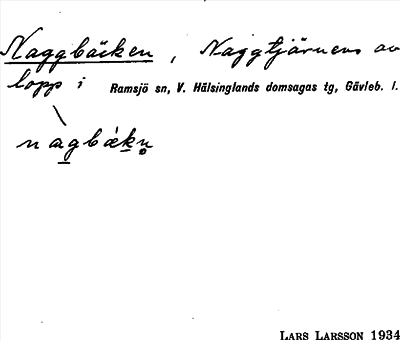 Naggbäcken, Naggtjärnens av
lopp i Ramsjö sn, V. Hälsinglands domsagas tg, Gävleb. l.
nagbäkn̥
LARS LARSSON 1934